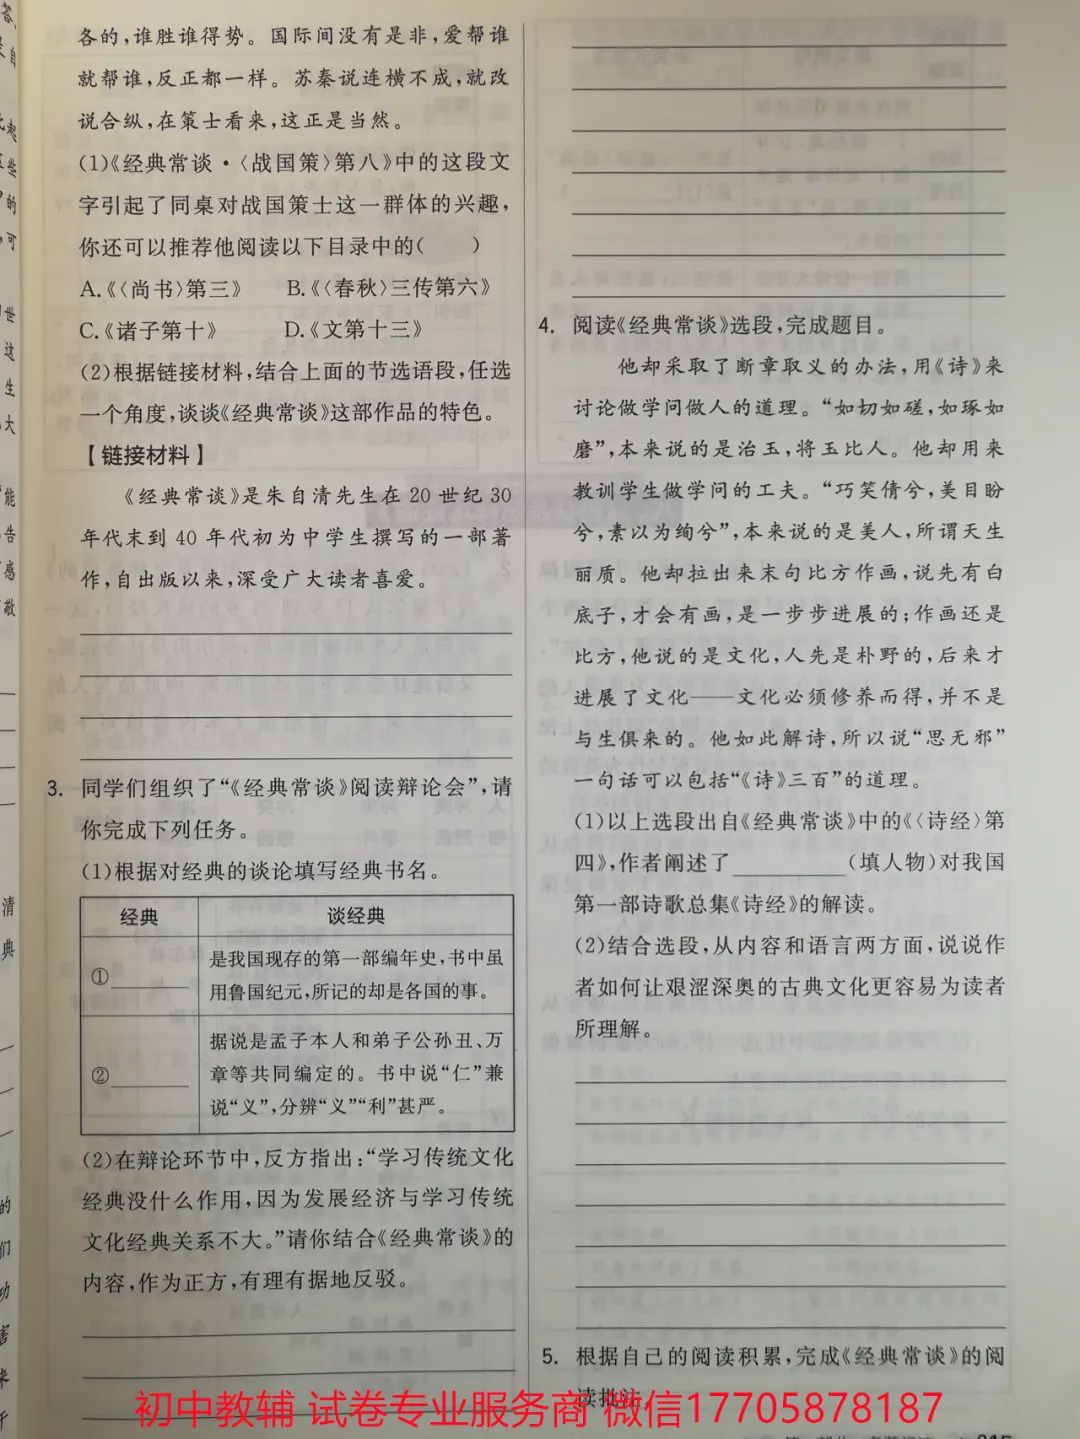 各的，谁胜谁得势。国际间没有是非，爱帮谁
就帮谁，反正都一样。苏秦说连横不成，就改
说合纵，在策士看来，这正是当然。
(1)《经典常谈·〈战国策〉第八》中的这段文
字引起了同桌对战国策士这一群体的兴趣，
你还可以推荐他阅读以下目录中的(　　)
A.《〈尚书〉第三》　B.《〈春秋〉三传第六》
C.《诸子第十》　D.《文第十三》
(2)根据链接材料，结合上面的节选语段，任选
一个角度，谈谈《经典常谈》这部作品的特色。
【链接材料】
《经典常谈》是朱自清先生在20世纪30
年代末到40年代初为中学生撰写的一部著
作，自出版以来，深受广大读者喜爱。
3. 同学们组织了“《经典常谈》阅读辩论会”，请
你完成下列任务。
(1)根据对经典的谈论填写经典书名。
经典　谈经典
①________
是我国现存的第一部编年史，书中虽
用鲁国纪元，所记的却是各国的事。
②________
据说是孟子本人和弟子公孙丑、万
章等共同编定的。书中说“仁”兼
说“义”，分辨“义”“利”甚严。
(2)在辩论环节中，反方指出：“学习传统文化
经典没什么作用，因为发展经济与学习传统
文化经典关系不大。”请你结合《经典常谈》的
内容，作为正方，有理有据地反驳。
4. 阅读《经典常谈》选段，完成题目。
他却采取了断章取义的办法，用《诗》来
讨论做学问做人的道理。“如切如磋，如琢如
磨”，本来说的是治玉，将玉比人。他却用来
教训学生做学问的工夫。“巧笑倩兮，美目盼
兮，素以为绚兮”，本来说的是美人，所谓天生
丽质。他却拉出来末句比方作画，说先有白
底子，才会有画，是一步步进展的；作画还是
比方，他说的是文化，人先是朴野的，后来才
进展了文化——文化必须修养而得，并不是
与生俱来的。他如此解诗，所以说“思无邪”
一句话可以包括“《诗》三百”的道理。
(1)以上选段出自《经典常谈》中的《〈诗经〉第
四》，作者阐述了__________(填人物)对我国
第一部诗歌总集《诗经》的解读。
(2)结合选段，从内容和语言两方面，说说作
者如何让艰涩深奥的古典文化更容易为读者
所理解。
5. 根据自己的阅读积累，完成《经典常谈》的阅
读批注。
初中教辅 试卷专业服务商 微信17705878187